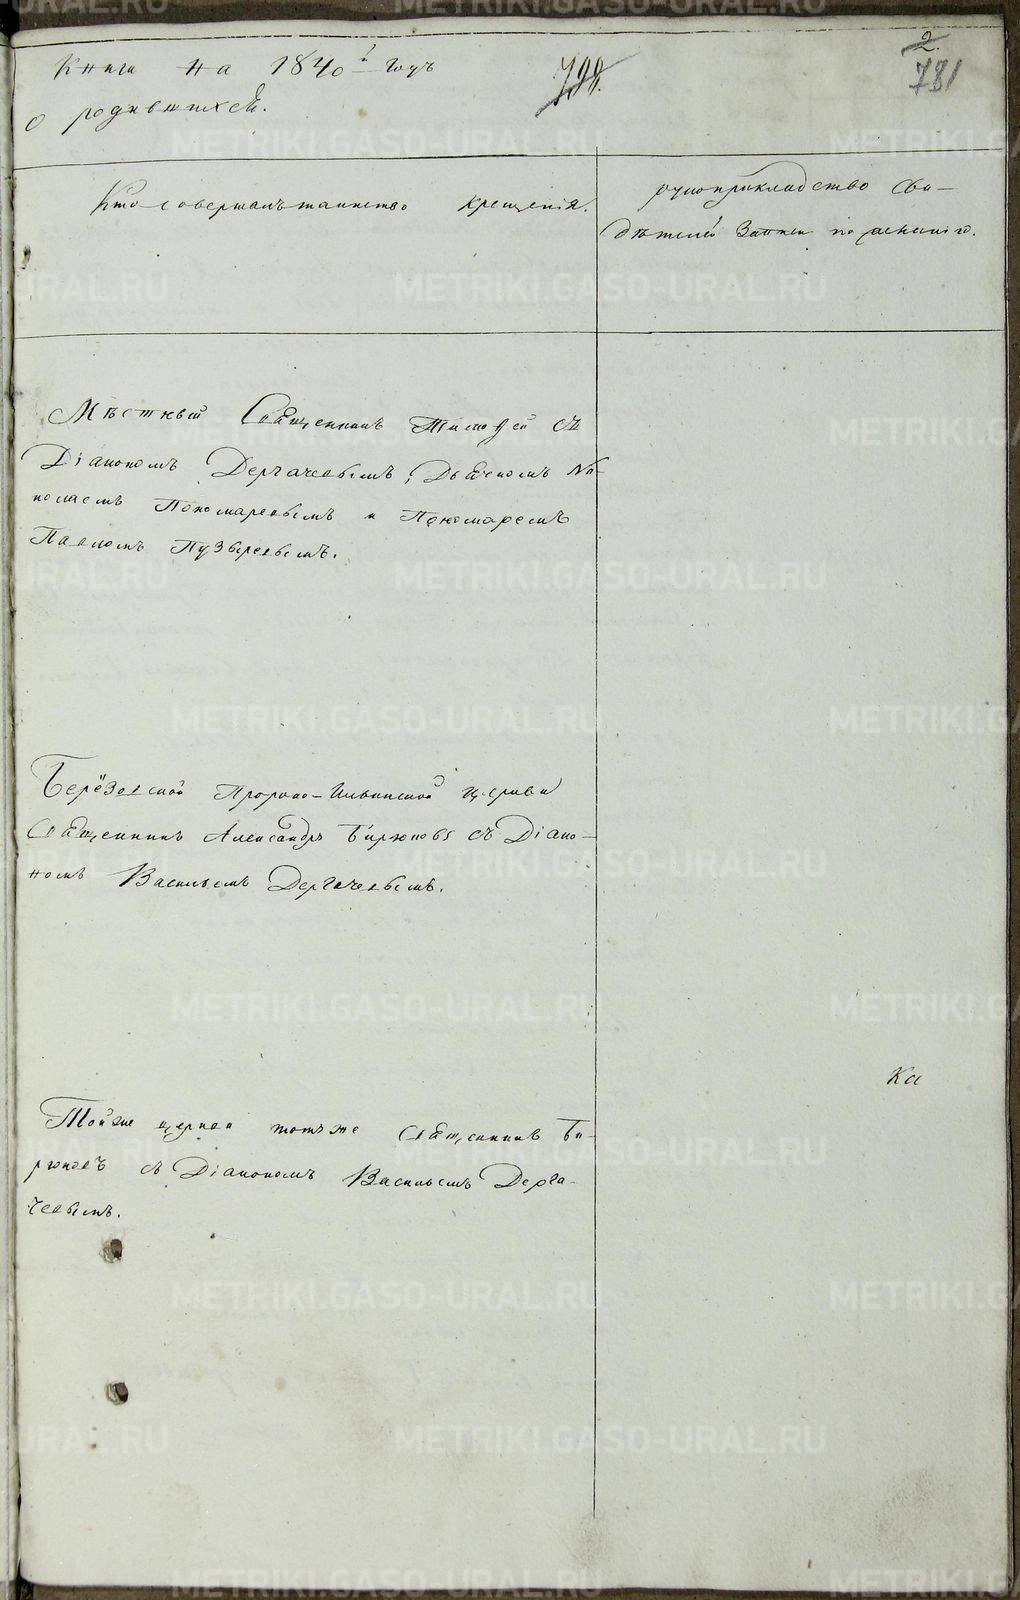 Книги на 1840й годъ
о родившихся.
798.
2.
781
Кто совершалъ таинство крещенія.
рукоприкладство сви-
дѣтелей записи по желанію.
Мѣстный Священникъ Тимофей съ
Діакономъ Дергачевымъ, Дьячкомъ Ни-
колаемъ Пономаревымъ и Пономаремъ
Павломъ Пузыревымъ.
Берёзовской Пророко-Ильинской церкви
Священникъ Александръ Бирюковъ съ Діако-
номъ Васильемъ Дергачевымъ.
Ка
Той же церкви тотъ же Священникъ Би-
рюковъ съ Діакономъ Васильемъ Дерга-
чевымъ.
METRIKI.GASO-URAL.RU